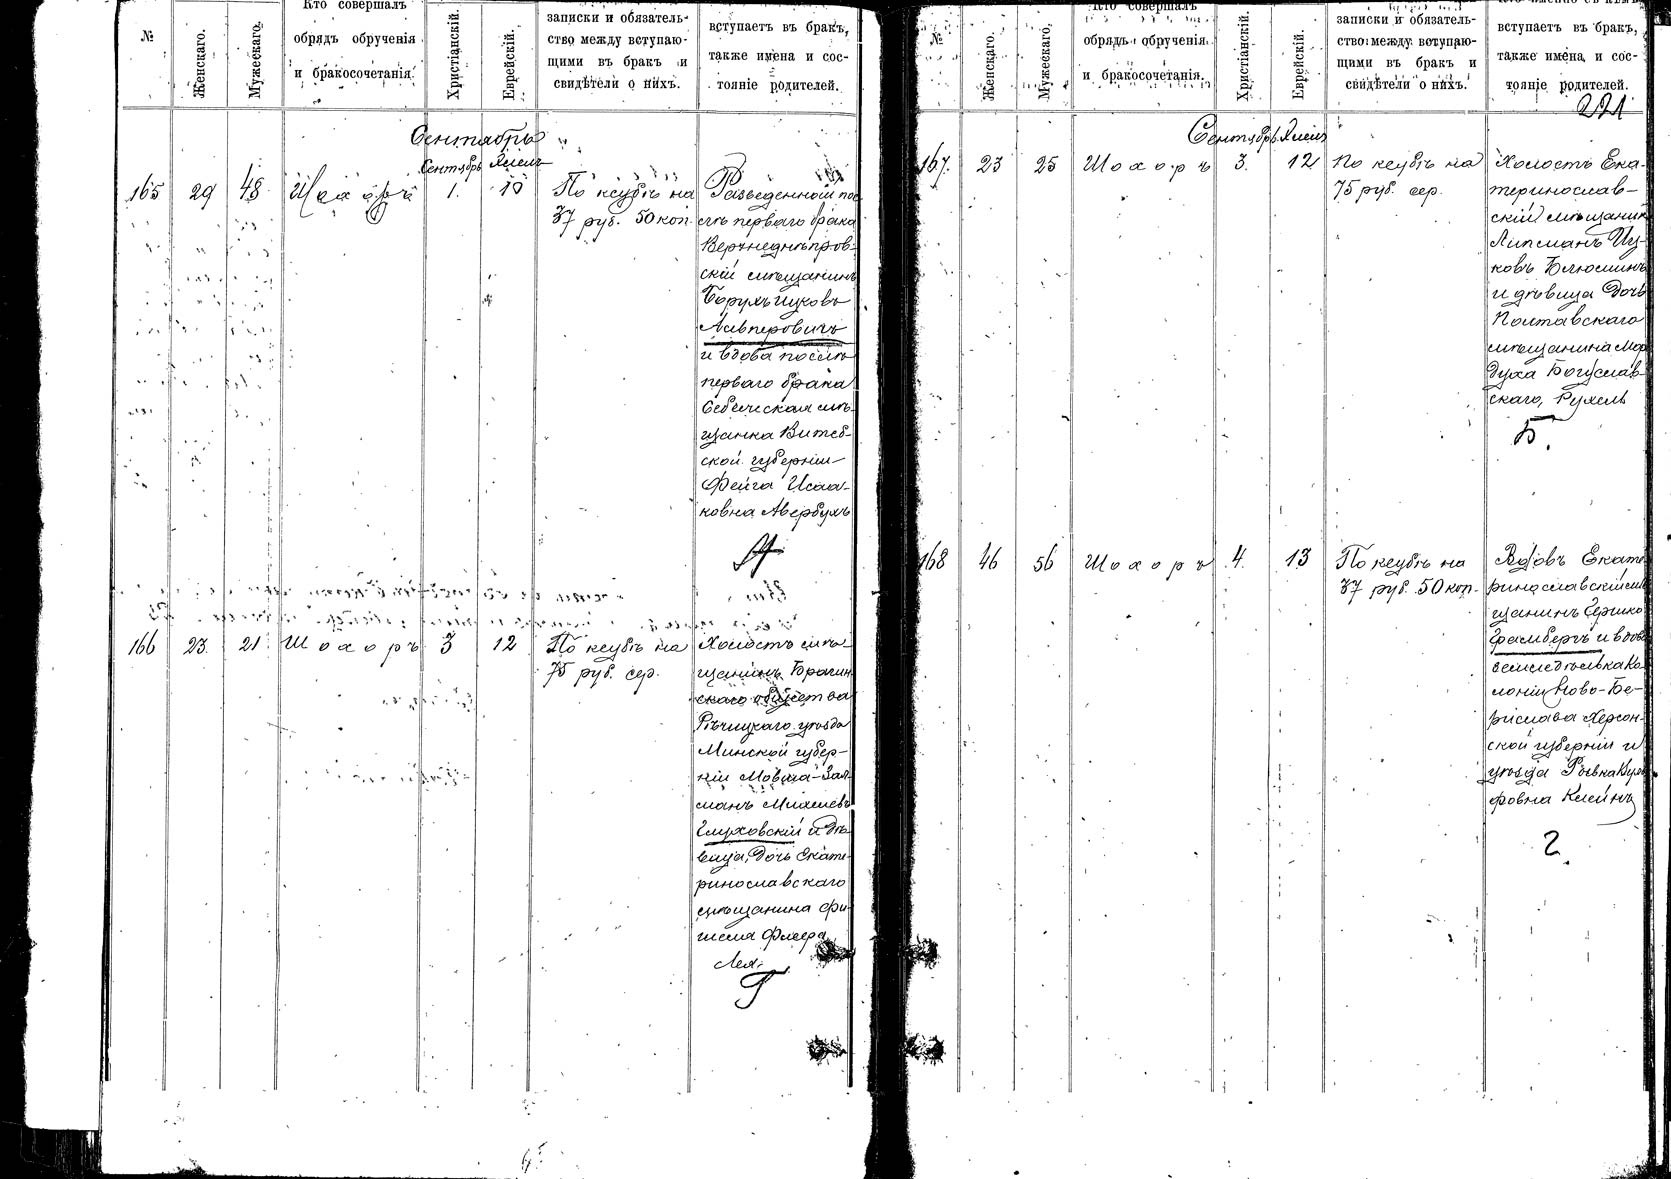 №
Женскаго.
Мужескаго.
Кто совершалъ
обрядъ обрученія
и бракосочетанія.
Христіанскій.
Еврейскій.
записки и обязатель-
ство между вступаю-
щими въ бракъ и
свидѣтели о нихъ.
вступаетъ въ бракъ,
также имена и сос-
тояніе родителей.
Сентябрь
Сентябрь
165
29
48
Шохоръ
1.
10
По ксубѣ на
37 руб. 50 коп.
Разведенной пос
лѣ перваго брака
Верхнеднѣпров-
скій мѣщанинъ
Борухъ Ицковъ
Альперовичъ
и вдова послѣ
перваго брака
Себежская мѣ-
щанка Витеб-
ской губерніи
Фейга Исаа-
ковна Авербухъ
А
166
23
21
Шохоръ
3
12
По ксубѣ на
75 руб. сер.
Холостъ мѣ-
щанинъ Брагин-
скаго общества
Рѣчицкаго уѣзда
Минской губер-
ніи Мовша-Зал-
манъ Михелевъ
Глуховскій и дѣ-
вица, дочь Екате-
ринославскаго
мѣщанина Фи-
шеля Флеера
Лея.
Г
№
Женскаго.
Мужескаго.
Кто совершалъ
обрядъ обрученія
и бракосочетанія.
Христіанскій.
Еврейскій.
записки и обязатель-
ство между вступаю-
щими въ бракъ и
свидѣтели о нихъ.
вступаетъ въ бракъ,
также имена и сос-
тояніе родителей.
221
Сентябрь
167.
23
25
Шохоръ
3.
12
По ксубѣ на
75 руб. сер.
Холостъ Ека-
теринослав-
скій мѣщанин
Липманъ Иц-
ковъ Блюминъ
и дѣвица дочь
Полтавскаго
мѣщанина Мор
духа Богуслав-
скаго, Рухель
Б.
168
46
56
Шохоръ
4.
13
По ксубѣ на
37 руб. 50 коп.
Вдовъ Екате
ринославскій мѣ
щанинъ Гершко
Грамбергъ и вдова
земледѣлька Ко
лоніи Ново-Бе-
рислава Херсон-
ской губерніи и
уѣзда Ривка Вуль
фовна Клейнъ
Г.